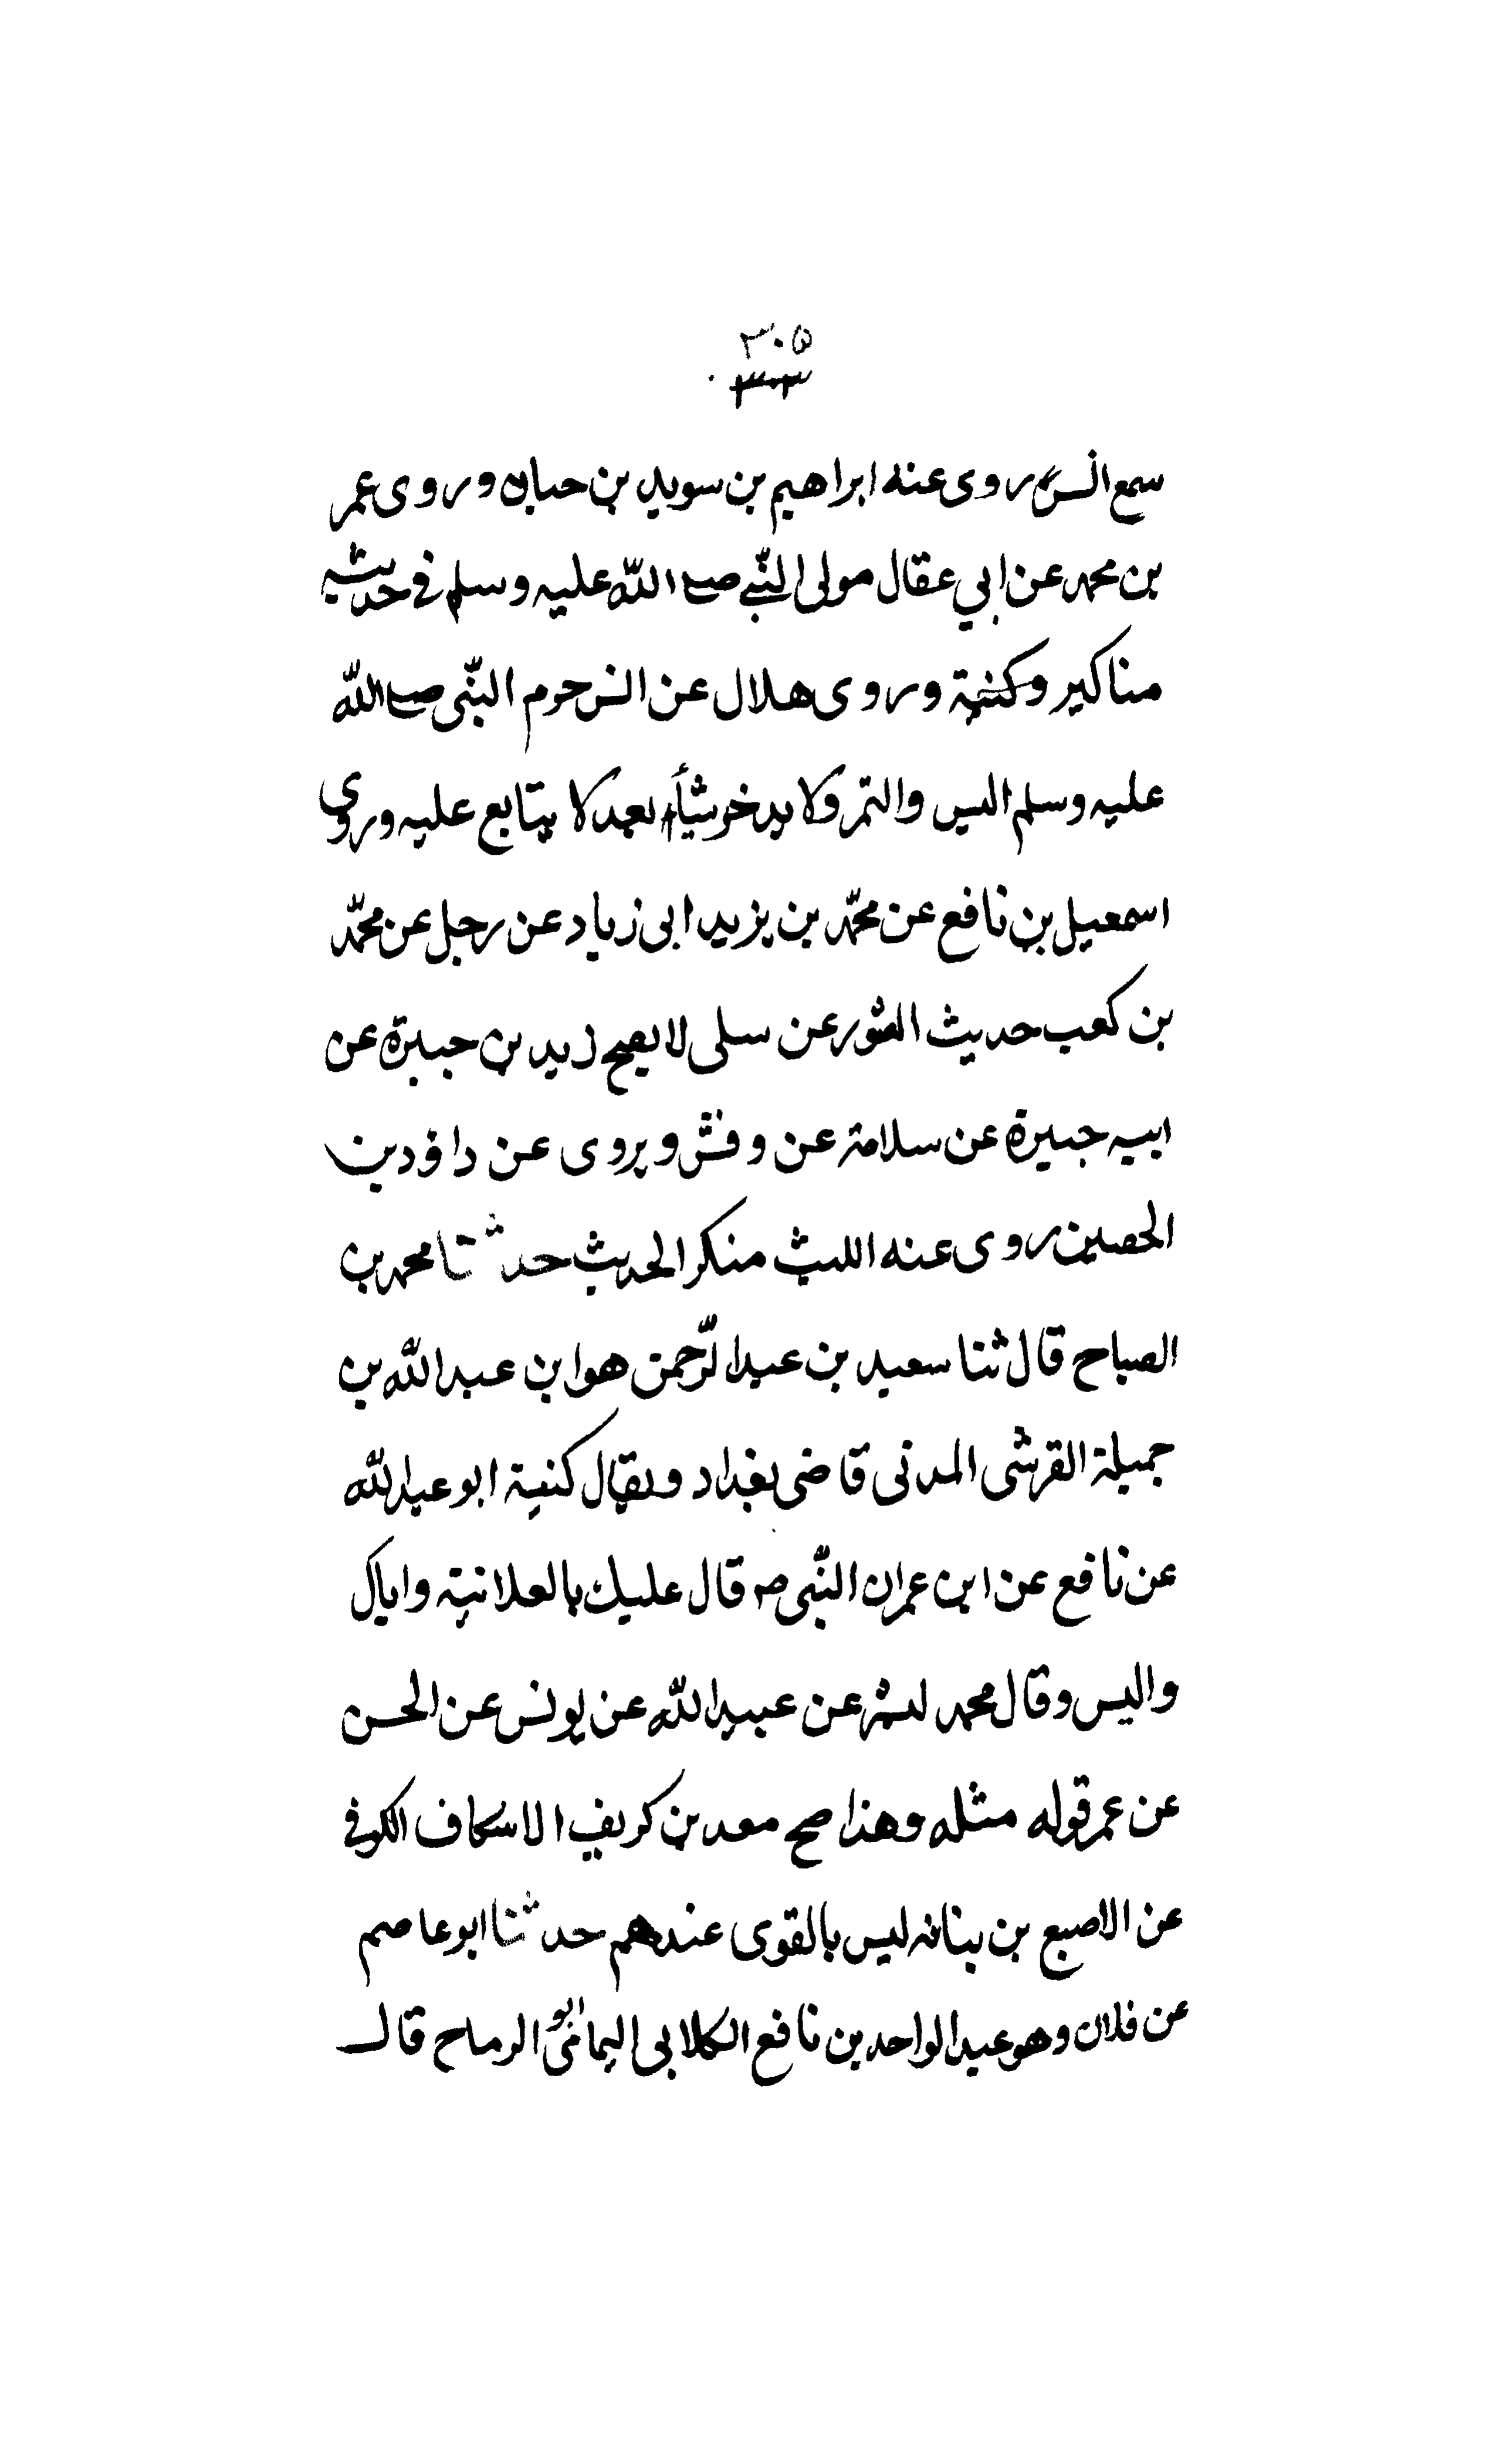 ٣٠٥
سمع انس روى عنه ابراهيم بن سويد بن حبان وروى عمر
بن محمد عن ابي عقال مولى النبي صلے الله عليه وسلم في حديثه
مناكير وكنيته وروى هلال عن انس حرم النبي صلے الله
عليه وسلم البسر والتمر ولا يدخر شيأ لغد لا يتابع عليه وروى
اسمعيل بن نافع عن محمد بن يزيد ابى زياد عن رجل عن محمد
بن كعب حديث الصور عن سلى لا يصح زيد بن جبيرة عن
ابيه جبيرة عن سلامة عن وقش ويروى عن داؤد بن
الحصين روى عنه الليث منكر الحديث حدثنا محمد بن
الصباح قال ثنا سعيد بن عبد الرحمن هو ابن عبد الله بن
جميلة القرشى المدنى قاضى بغداد ويقال كنية ابو عبد الله
عن نافع عن ابن عمر ان النبى صـ قال عليك بالعلانية واياك
والسر وقال محمد بن بشر عن عبيد الله عن يونس عن الحسن
عن عمر قوله مثله وهذا صح سعد بن طريف الاسكاف الكوفي
عن الاصبع بن بناته ليس بالقوى عندهم حدثنا ابو عاصم
عن فلان وهو عبد الواحد بن نافع الكلابى اليمامى ابو الرماح قال